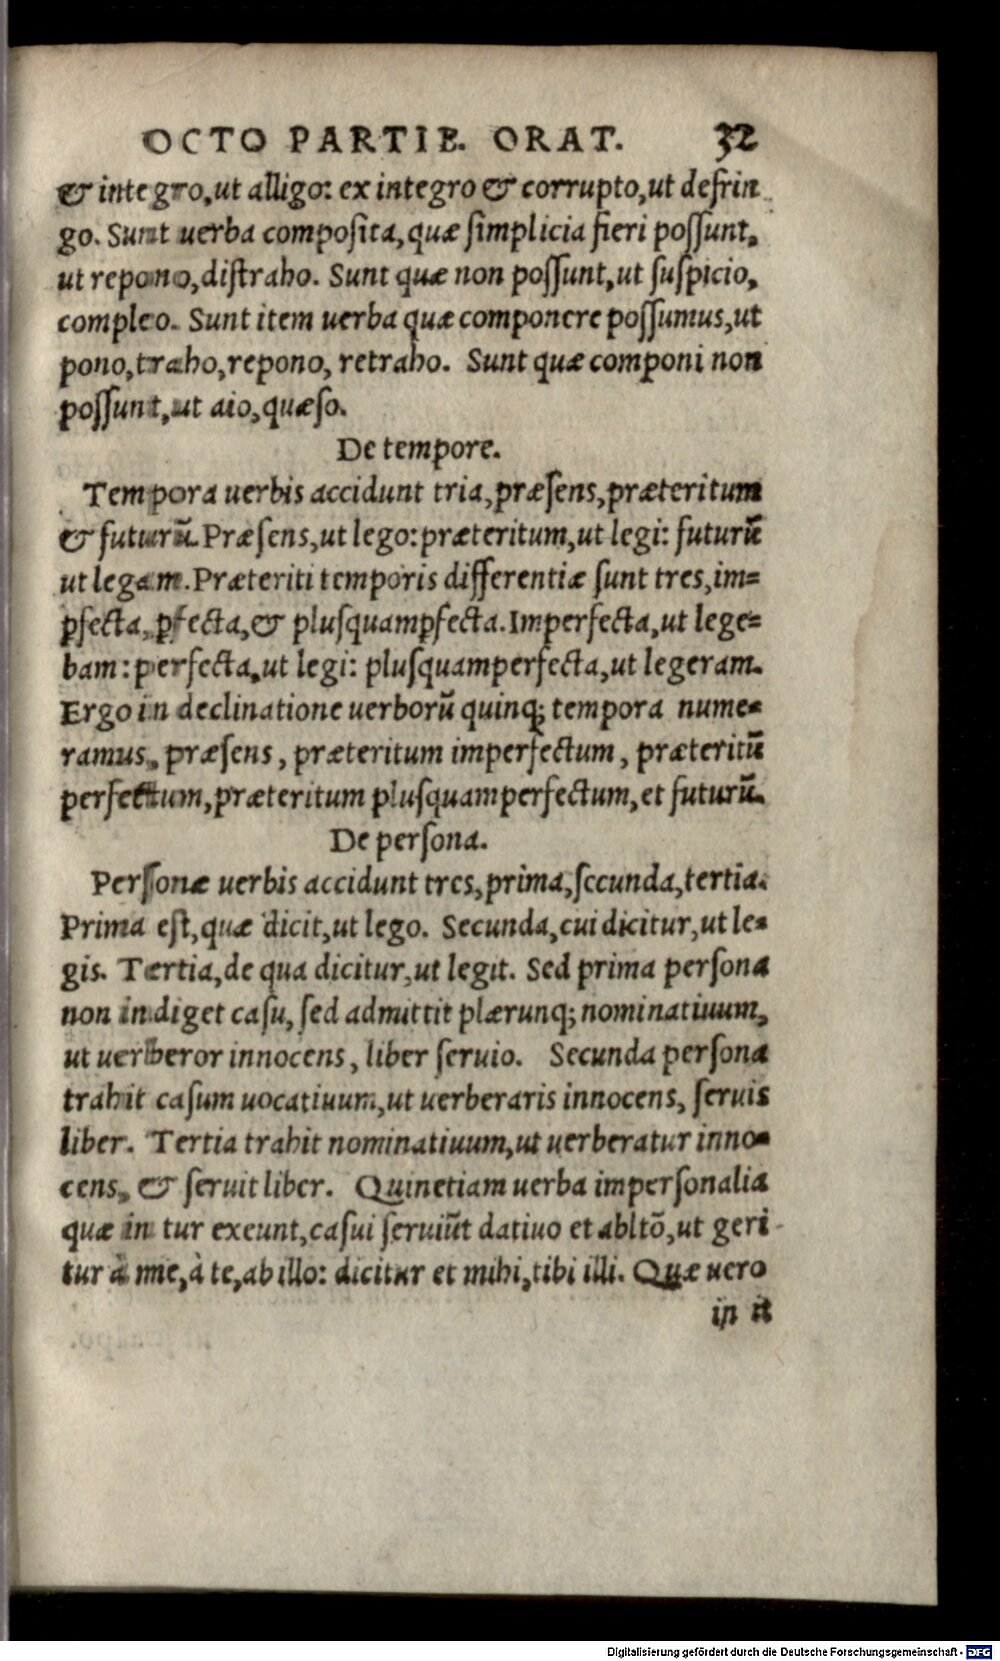 OCTO PARTIE. ORAT. 32
& integro,ut alligo: ex integro & corrupto,ut defrin
go. Sunt uerba composita,quæ simplicia fieri possunt,
ut repono,distraho. Sunt quæ non possunt,ut suspicio,
compleo. Sunt item uerba quæ componere possumus,ut
pono,traho,repono, retraho. Sunt quæ componi non
possunt,ut aio,quæso.
De tempore.
Tempora uerbis accidunt tria,præsens,præteritum
& futurũ. Præsens,ut lego:præteritum,ut legi: futurũ
ut legam.Præteriti temporis differentiæ sunt tres,im=
ꝑfecta,ꝑfecta,& plusquamꝑfecta.Imperfecta,ut lege=
bam: perfecta,ut legi: plusquamperfecta,ut legeram.
Ergo in declinatione uerborũ quinq; tempora nume=
ramus, præsens, præteritum imperfectum, præteritũ
perfectum,præteritum plusquamperfectum,et futurũ.
De persona.
Personæ uerbis accidunt tres,prima,secunda,tertia.
Prima est,quæ dicit,ut lego. Secunda,cui dicitur,ut le=
gis. Tertia,de qua dicitur,ut legit. Sed prima persona
non indiget casu, sed admittit plærunq; nominatiuum,
ut uerberor innocens, liber seruio. Secunda persona
trahit casum uocatiuum,ut uerberaris innocens, seruis
liber. Tertia trahit nominatiuum,ut uerberatur inno=
cens, & seruit liber. Quinetiam uerba impersonalia
quæ in tur exeunt,casui seruiũt datiuo et abltõ,ut geri-
tur à me,à te,ab illo: dicitur et mihi,tibi illi. Quæ uero
in it
Digitalisierung gefördert durch die Deutsche Forschungsgemeinschaft - DFG